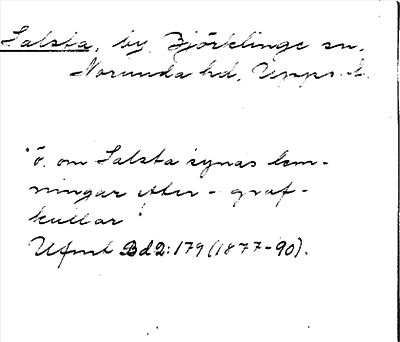 Salsta, by, Björklinge sn.
Norunda hd, Upps. l.
"ö. om Salsta synas lem-
ningar efter - graf-
kullar"
Ufmt Bd 2: 179 (1877-90).